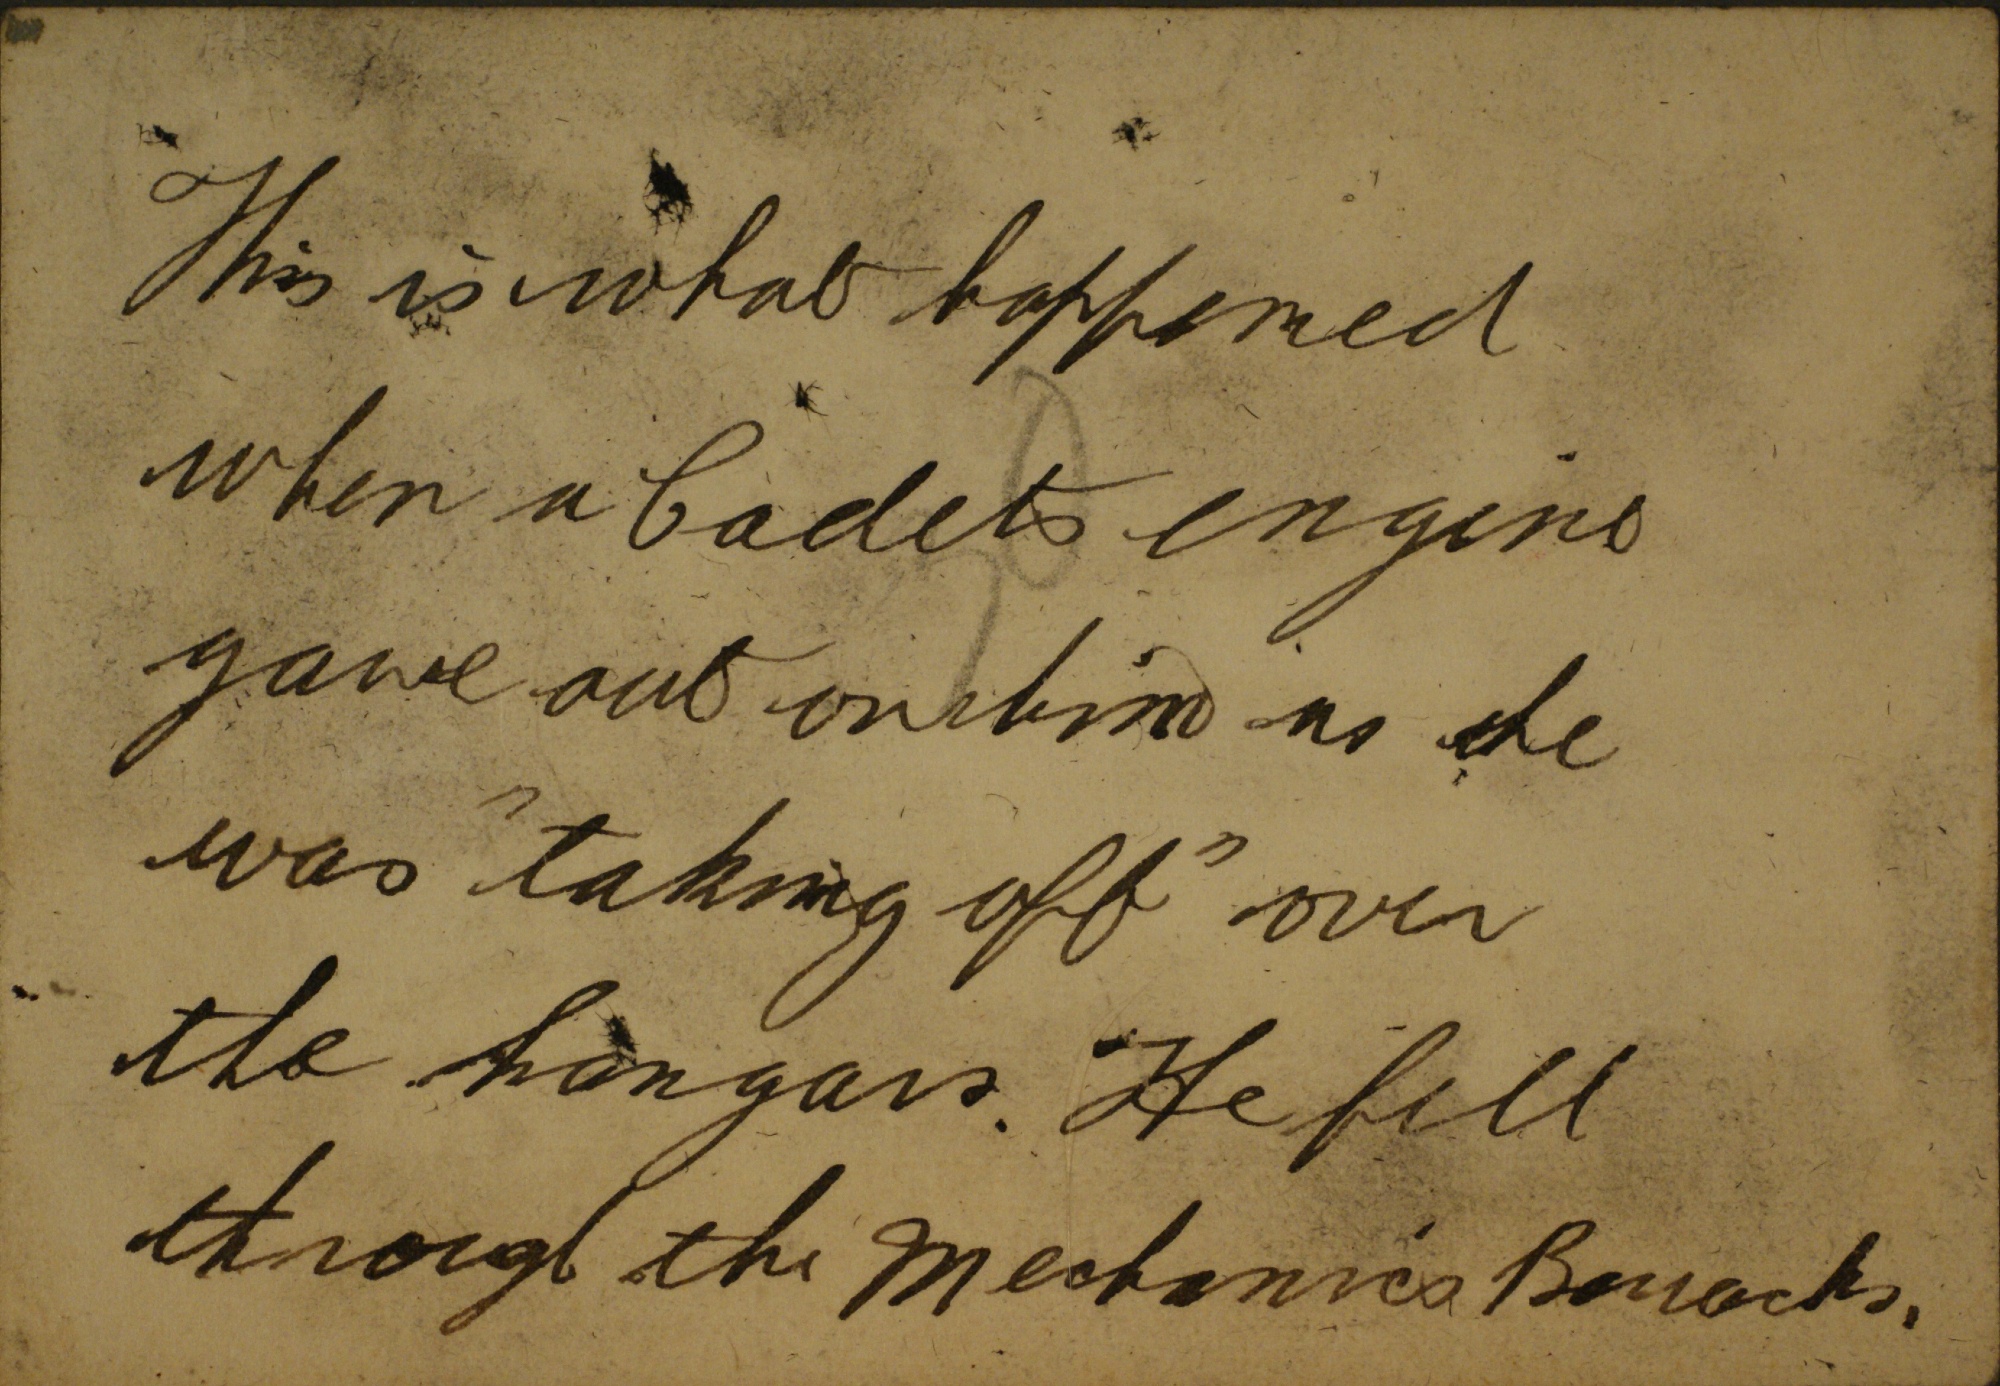 This is what happened
when a Cadets engine
gave out on him as he
was "taking off" over
the hangars. He fell
through the Mechanics Barracks.